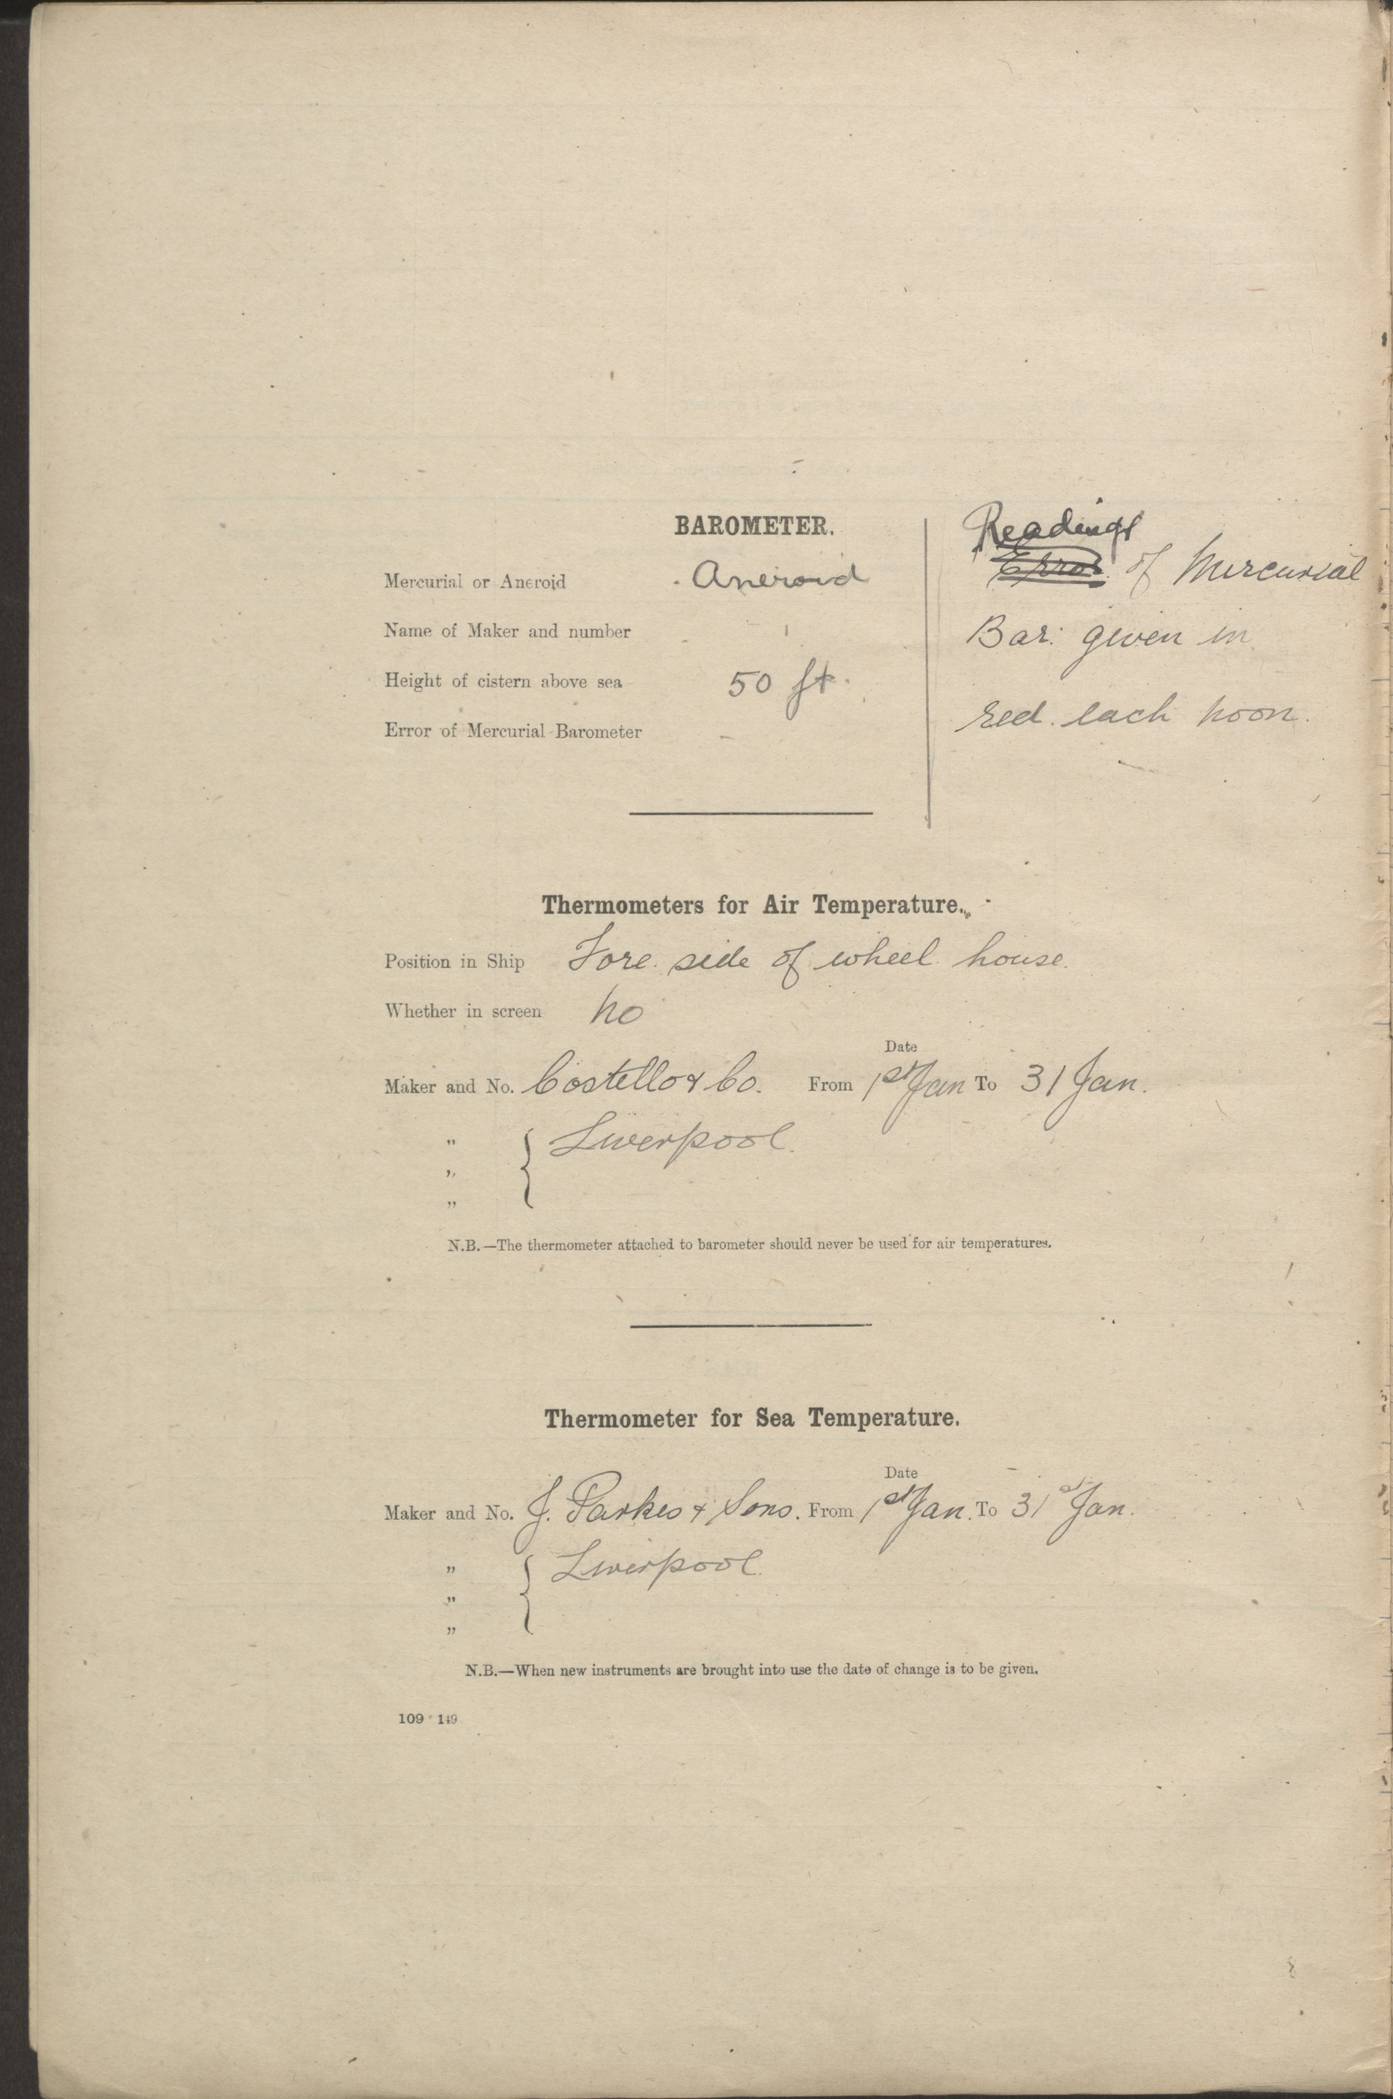 BAROMETER.
Mercurial or Aneroid Aneroid
Name of Maker and number
Height of cistern above sea 50 ft.
Error of Mercurial Barometer -
Readings
Error of Mercurial
Bar: given in
red. each noon.
Thermometers for Air Temperature.
Position in Ship Fore side of wheel house.
Whether in screen No
Date
Maker and No. Costello & Co. From 1st Jan To 31 Jan.
" { Liverpool.
"
"
N.B.—The thermometer attached to barometer should never be used for air temperatures.
Thermometer for Sea Temperature.
Date
Maker and No. J. Parkes & Sons. From 1st Jan. To 31st Jan.
" { Liverpool
"
"
N.B.—When new instruments are brought into use the date of change is to be given.
109 149